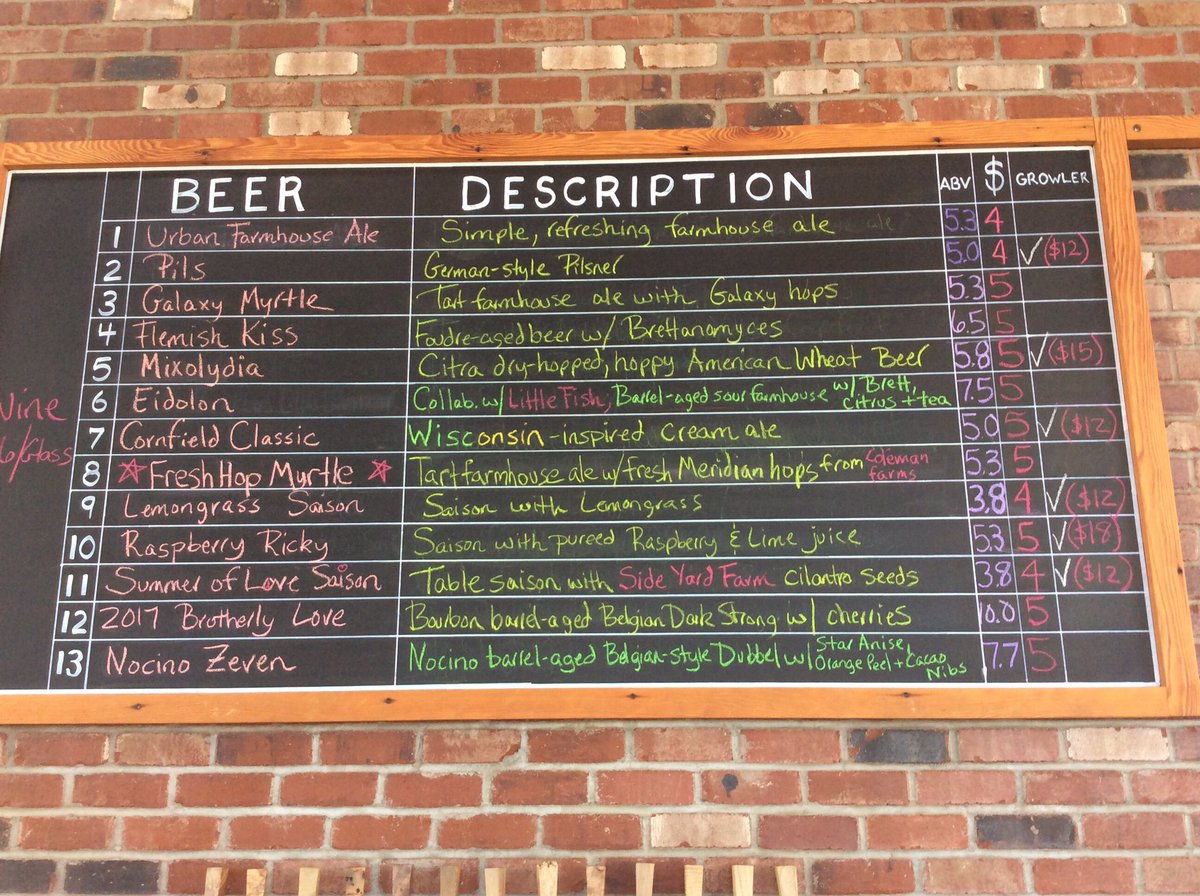 BEER DESCRIPTION ABV $ GROWLER
1 Urban Farmhouse Ale Simple, refreshing farmhouse ale ale 5.3 4
2 Pils German-style Pilsner 5.0 4 ✓($12)
3 Galaxy Myrtle Tart farmhouse ale with Galaxy hops 5.3 5
4 Flemish Kiss Foudre-aged beer w/ Brettanomyces 6.5 5
5 Mixolydia Citra dry-hopped, hoppy American Wheat Beer 5.8 5 ✓($15)
6 Eidolon Collab. w/ Little Fish; Barrel-aged sour farmhouse w/ Brett, citrus + tea 7.5 5
7 Cornfield Classic Wisconsin-inspired Cream ale 5.0 5 ✓($12)
8 ☆ Fresh Hop Myrtle ☆ Tart farmhouse ale w/ fresh Meridian hops from Coleman farms 5.3 5
9 Lemongrass Saison Saison with Lemongrass 3.8 4 ✓($12)
10 Raspberry Ricky Saison with pureed Raspberry & Lime juice 5.3 5 ✓($18)
11 Summer of Love Saison Table saison with Side Yard Farm cilantro seeds 3.8 4 ✓($12)
12 2017 Brotherly Love Bourbon barrel-aged Belgian Dark Strong w/ cherries 10.0 5
13 Nocino Zeven Nocino barrel-aged Belgian-style Dubbel w/ Star Anise, Orange Peel + Cacao Nibs 7.7 5